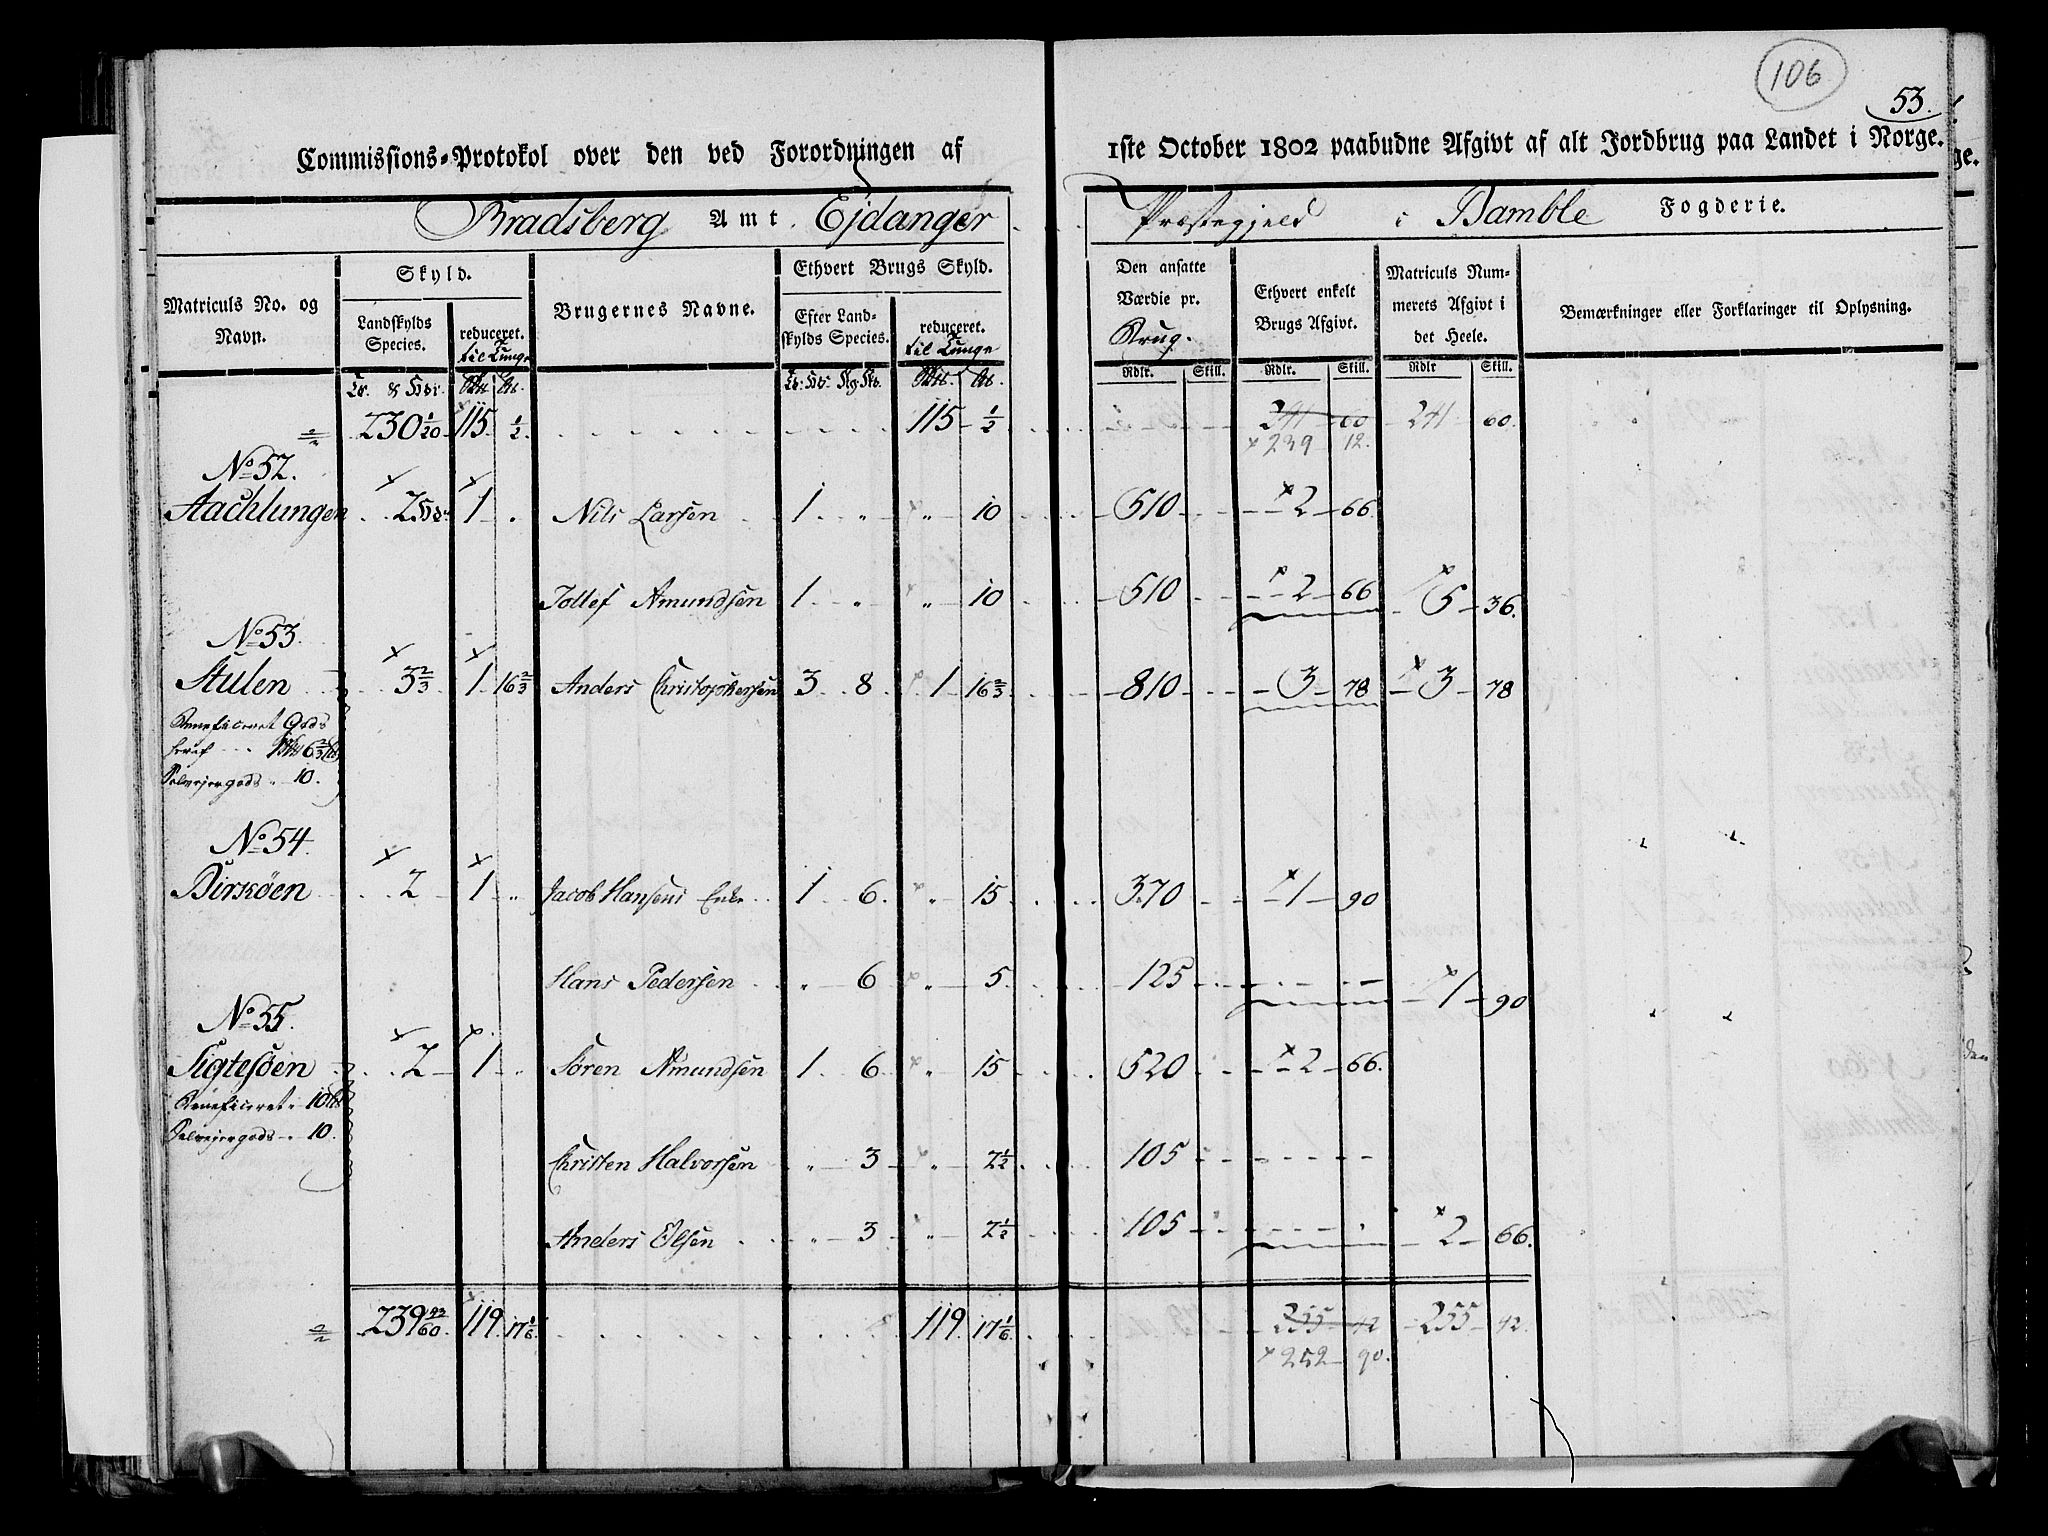 106
53.
Commissions-Protokol over den ved Forordningen af 1ste October 1802 paabudne Afgivt af alt Jordbrug paa Landet i Norge.
Bradsberg Amt Ejdanger Præstegjeld i Bamble Fogderie.
Matriculs No. og Navn.
Skyld.
Landskylds Species.
reduceret. til Tunge
Brugernes Navne.
Ethvert Brugs Skyld.
Efter Landskylds Species.
reduceret. til Tunge
Den ansatte Værdie pr. Brug.
Ethvert enkelt Brugs Afgivt.
Matriculs Nummerets Afgivt i det Heele.
Bemærkninger eller Forklaringer til Oplysning.
Rdlr. Skill. Rdlr. Skill. Rdlr Skill.
230 1/20 115 1/2 115 1/2 241 60 241 60
239 12.
No 52.
Aachlungen 2 1 Nils Larsen 1 " " 10 510 2 66
Tollef Amundsen 1 " " 10 510 2 66 5 36.
No 53.
Stulen 3 2/3 1 16 2/3 Anders Christophersen 3 8 1 16 2/3 810 3 78 3 78
Beneficeret Gods
heraf 6 2/3
Selvejergods " 10.
No 54.
Birköen 2 1 " Jacob Hansens Enke 1 6 " 15 370 1 90
Hans Pedersen " 6 " 5 125 1 90
No 55.
Sigtesöen 2 1 Sören Amundsen 1 6 " 15 520 2 66.
Beneficeret " 10
Selvejergods " 10.
Christen Halvorsen " 3 " 2 1/2 105
Anders Olsen " 3 " 2 1/2 105 2 66.
239 43/60 119 17 1/6 119 17 1/6 255 42 255 42
252 90.